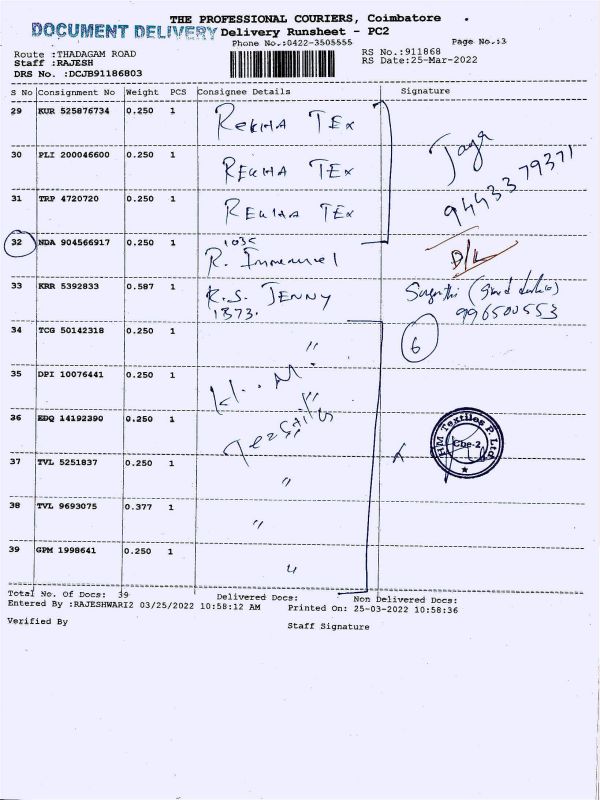 THE PROFESSIONAL COURIERS, Coimbatore
DOCUMENT DELIVERY Delivery Runsheet - PC2
Phone No.:0422-3505555 Page No.:3
Route :THADAGAM ROAD RS No.:911868
Staff :RAJESH RS Date:25-Mar-2022
DRS No. :DCJB91186803
S No Consignment No Weight PCS Consignee Details Signature
29 KUR 525876734 0.250 1 REKHA TEX
30 PLI 200046600 0.250 1 REKHA TEX Jaya
31 TRP 4720720 0.250 1 REKHA TEX 9443379371
32 NDA 904566917 0.250 1 R. Immanuel D/L
33 KRR 5392833 0.587 1 R.S. JENNY
1373. 996500553
34 TCG 50142318 0.250 1 " 6
35 DPI 10076441 0.250 1 H.M. "
36 EDQ 14192390 0.250 1 Textiles HM Textiles P. Ltd Cbe-2
37 TVL 5251837 0.250 1 "
38 TVL 9693075 0.377 1 "
39 GPM 1998641 0.250 1 "
Total No. Of Docs: 39 Delivered Docs: Non Delivered Docs:
Entered By :RAJESHWARI2 03/25/2022 10:58:12 AM Printed On: 25-03-2022 10:58:36
Verified By Staff Signature